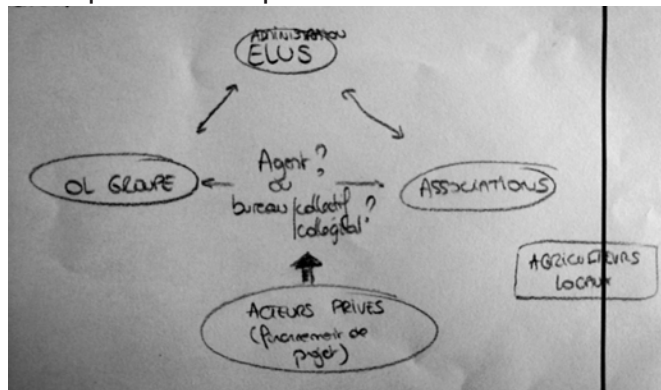 ADMINISTRATION
ELUS
OL GROUPE
Agent ?
ou
bureau/collectif ?
/collégial
ASSOCIATIONS
AGRICULTEURS
LOCAUX
ACTEURS PRIVES
(financement de
projet)